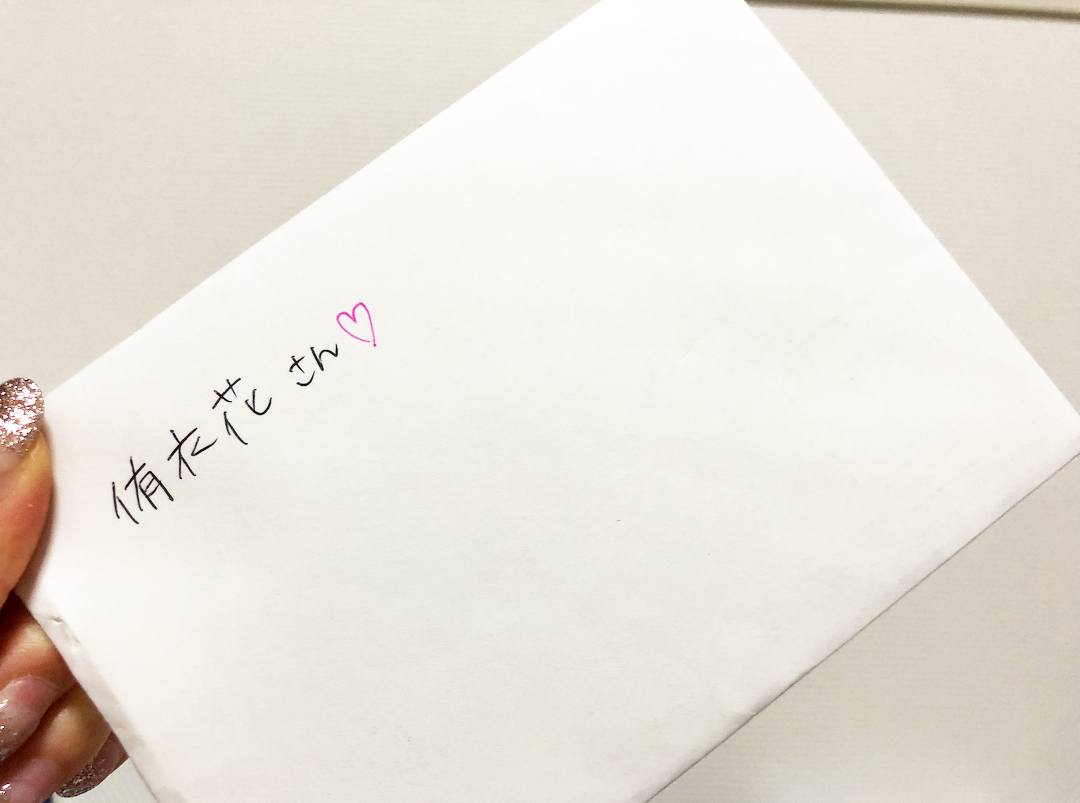 侑衣花さん♡